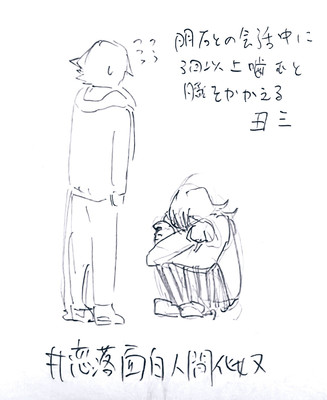 っっっ
明石との会話中に
3回以上噛むと
膝をかかえる
丑三
#恋落面白人間化奴